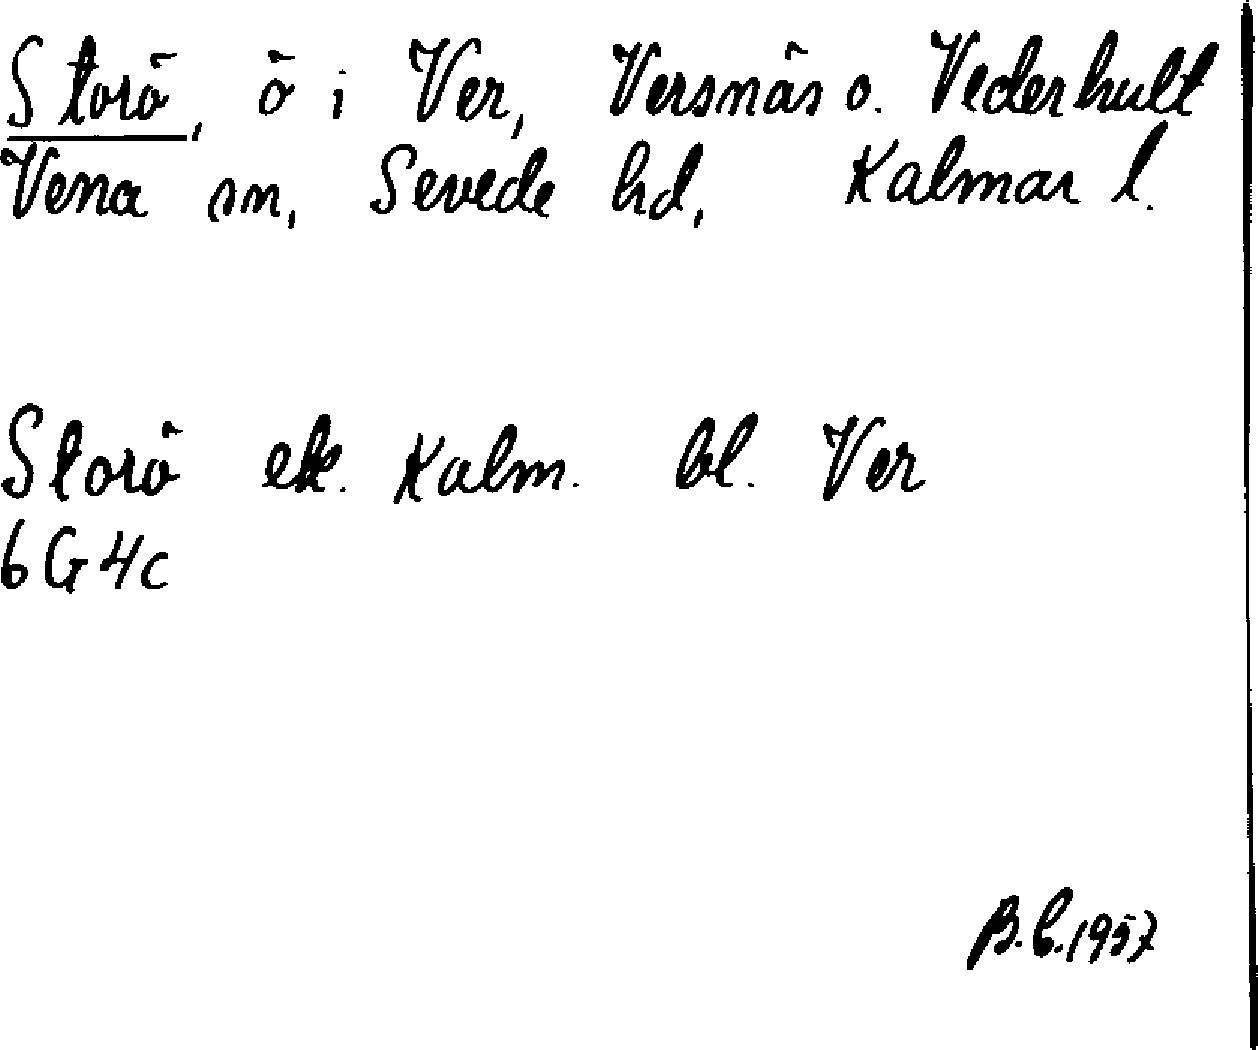 Storö, ö i Ver, Versnäs o. Vederhult
Vena sn, Sevede hd, Kalmar l.
Storö ek. Kalm. bl. Ver
6G4c
B.L.1957